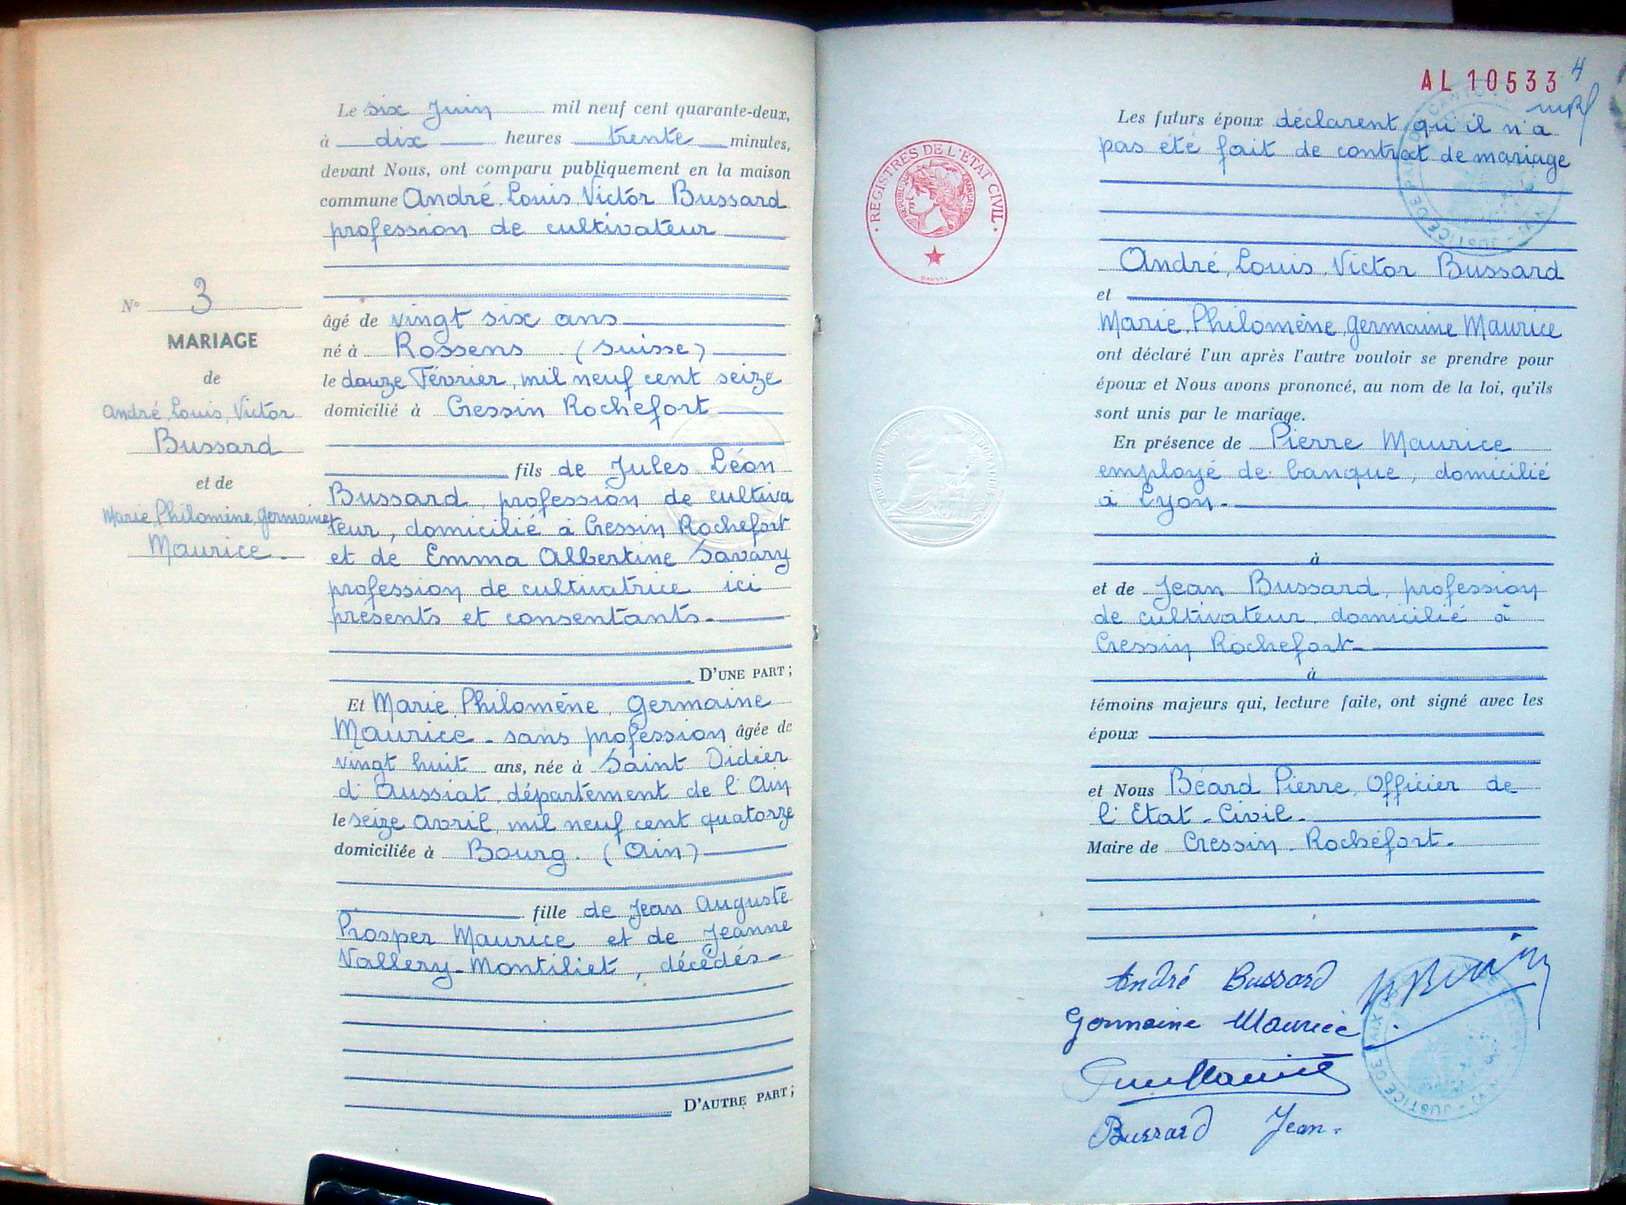 Le six Juin mil neuf cent quarante-deux,
à dix heures trente minutes,
devant Nous, ont comparu publiquement en la maison
commune André, Louis, Victor Bussard
profession de cultivateur
âgé de vingt six ans
né à Rossens (Suisse)
le douze Février, mil neuf cent seize
domicilié à Cressin Rochefort
fils de Jules Léon
Bussard, profession de cultiva
teur, domicilié à Cressin Rochefort
et de Emma Albertine Savary
profession de cultivatrice ici
présents et consentants.
D'UNE PART;
Et Marie, Philomène, Germaine
Maurice - sans profession âgée de
vingt huit ans, née à Saint Didier
d'Aussiat, département de l'Ain
le seize Avril, mil neuf cent quatorze
domiciliée à Bourg. (Ain)
fille de Jean Auguste
Prosper Maurice et de Jeanne
Vallery-Montiliet, décédés-
D'AUTRE PART;
N° 3
MARIAGE
de
André, Louis, Victor
Bussard
et de
Marie, Philomène, Germaine
Maurice.
AL 10533
4
REGISTRES DE L'ETAT CIVIL
Les futurs époux déclarent qu'il n'a
pas été fait de contrat de mariage
André, Louis, Victor Bussard
et
Marie, Philomène, Germaine Maurice
ont déclaré l'un après l'autre vouloir se prendre pour
époux et Nous avons prononcé, au nom de la loi, qu'ils
sont unis par le mariage.
En présence de Pierre Maurice
employé de banque, domicilié
à Lyon.
à
et de Jean Bussard, profession
de cultivateur, domicilié à
Cressin Rochefort
à
témoins majeurs qui, lecture faite, ont signé avec les
époux
et Nous Béard Pierre, Officier de
l'Etat-Civil.
Maire de Cressin-Rochefort.
André Bussard
Germaine Maurice
Bussard Jean.